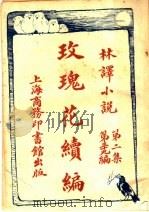 林譯小説
第二集
第五十九編
玫瑰花續編
上海商務印書館出版